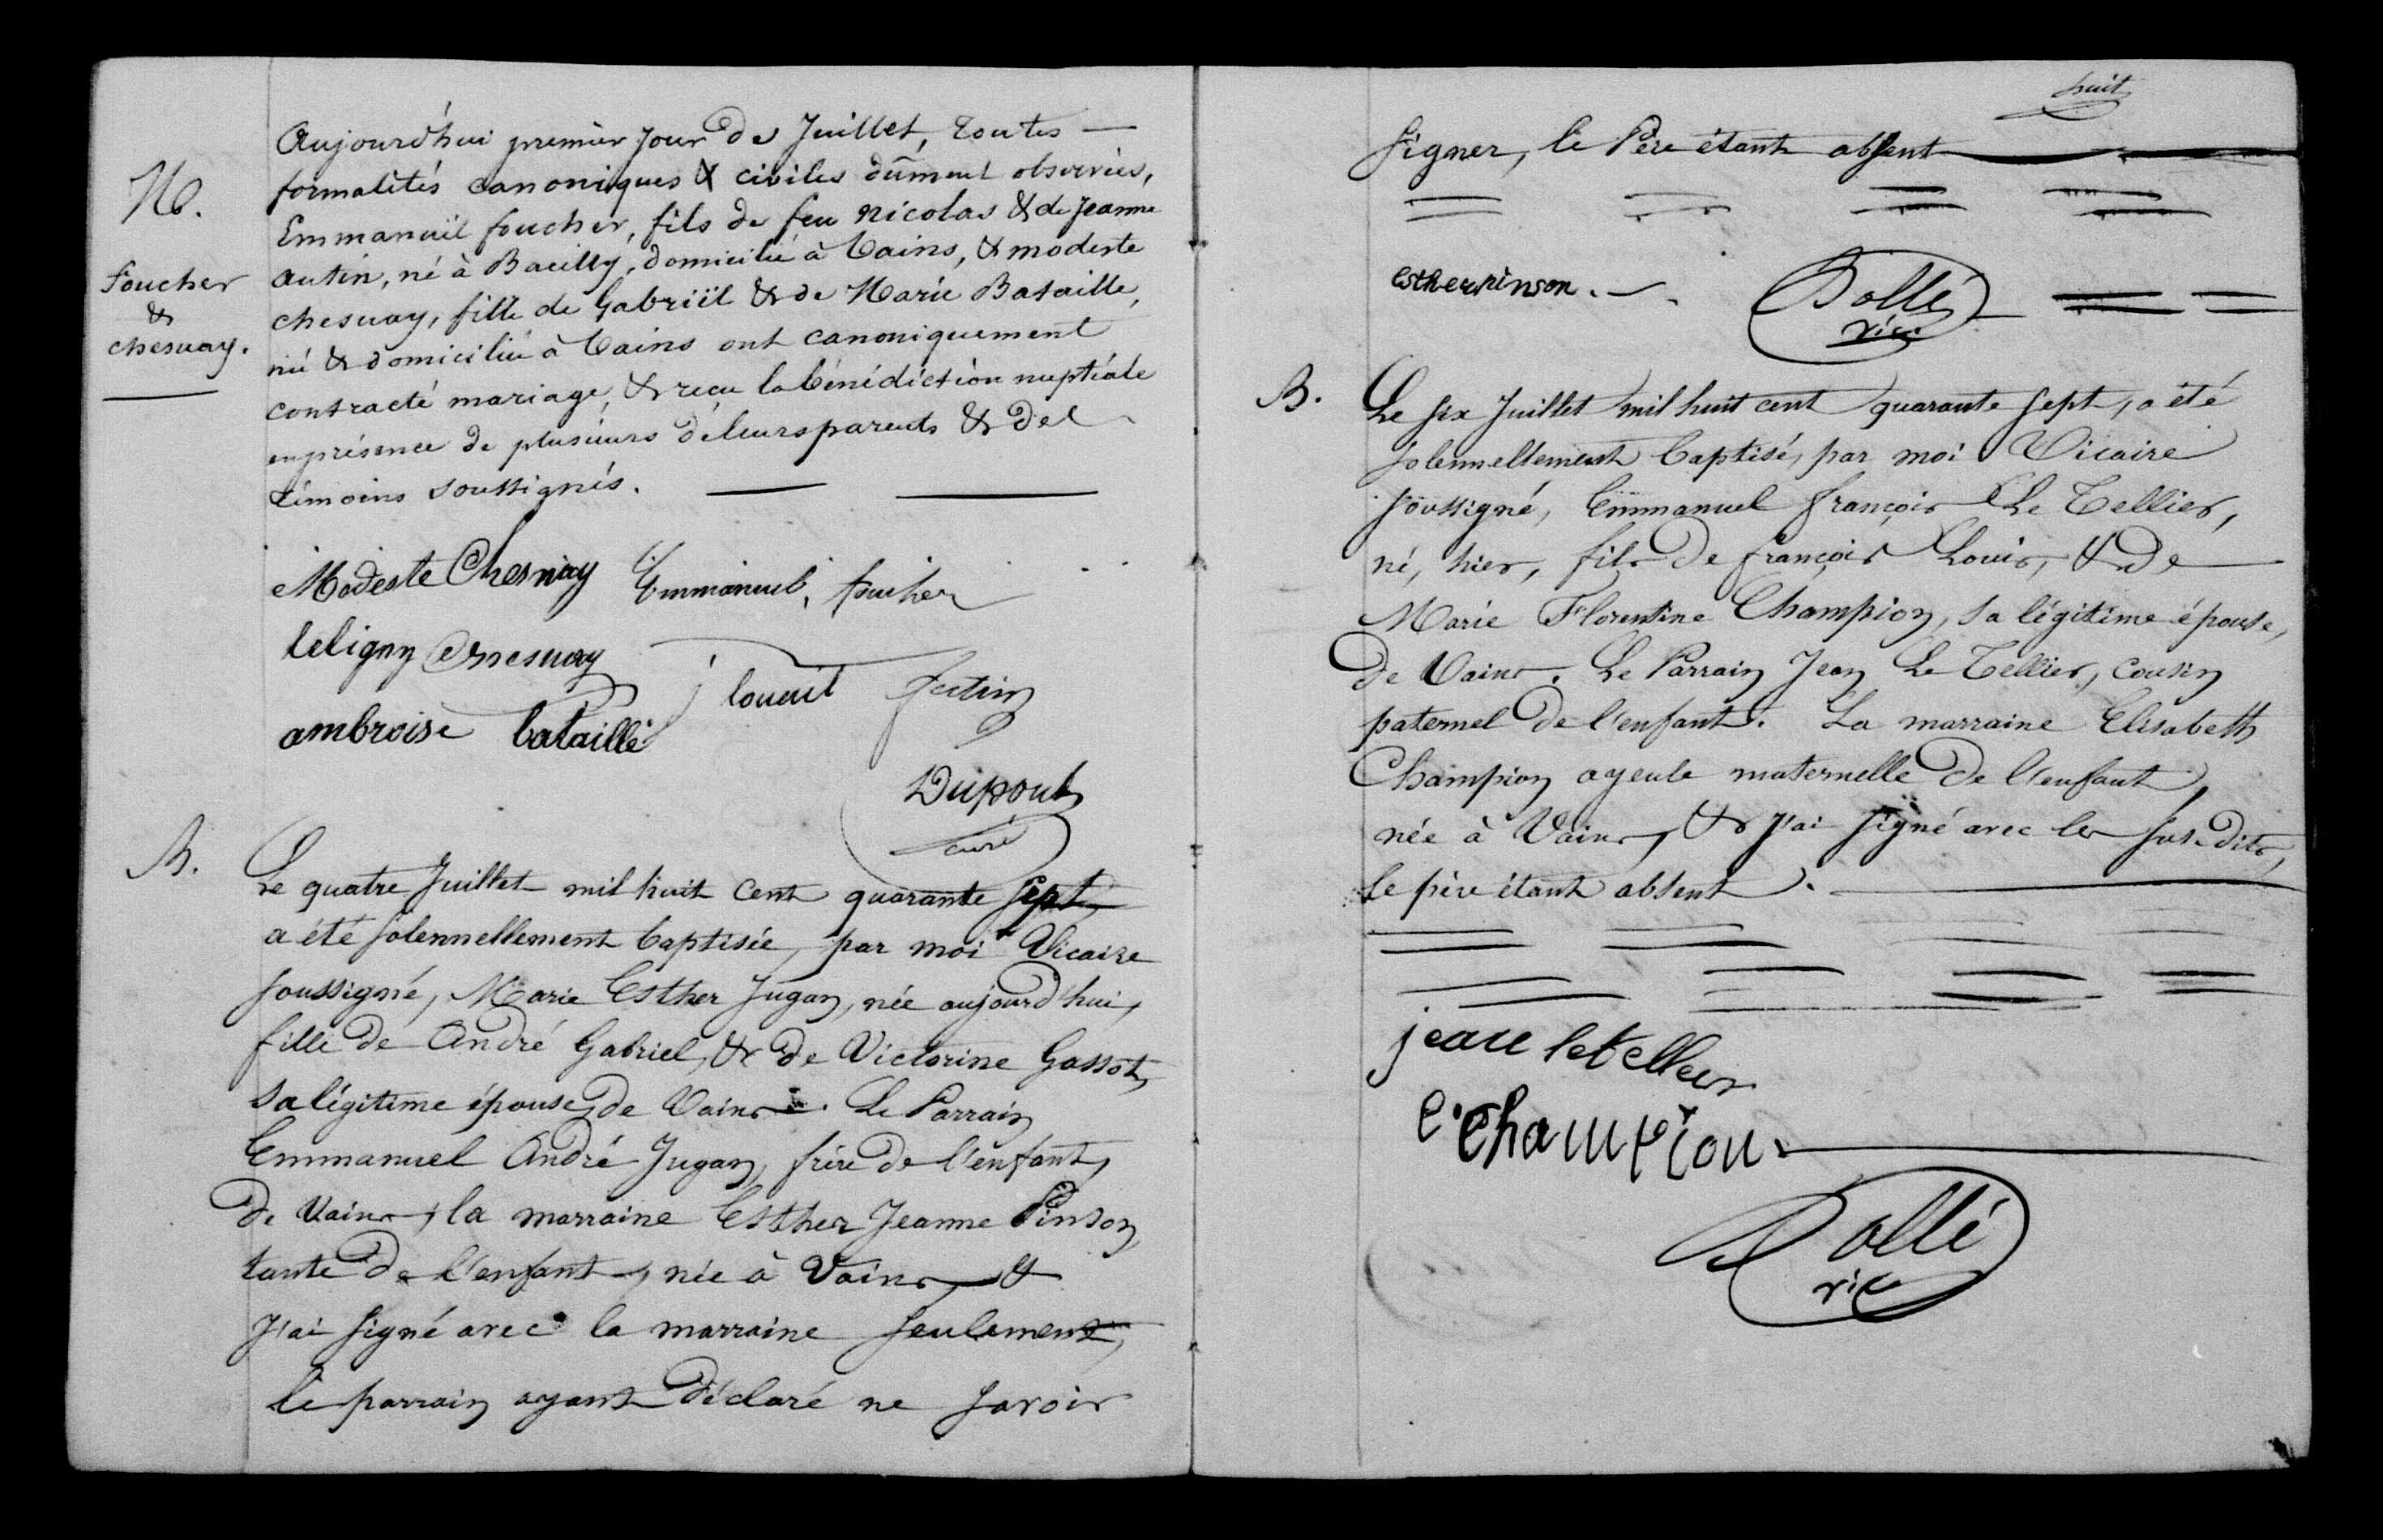 M.
Foucher
&
chesnay.
Aujourd'hui premier jour de Juillet, toutes
formalités canoniques & civiles dûment observées,
Emmanuël foucher, fils de feu nicolas & de jeanne
autin, né à Bacilly, domicilié à Vains, & modeste
chesnay, fille de Gabriël & de Marie Bataille,
née & domiciliée à Vains ont canoniquement
contracté mariage, & reçu la bénédiction nuptiale
en présence de plusieurs de leurs parents & des
témoins soussignés.
Modeste Chesnay Emmanuel foucher
chesnay
ambroise bataille
Dupont
curé
B.
Le quatre Juillet mil huit cent quarante sept,
a été solennellement baptisée, par moi Vicaire
soussigné, Marie Esther Jugan, née aujourd'hui,
fille de André Gabriel, & de Victorine Gassot,
sa légitime épouse, de Vains. Le Parrain
Emmanuel André Jugan, frère de l'enfant,
de Vains, la marraine Esther Jeanne Pinson
tante de l'enfant, née à Vains, &
j'ai signé avec la marraine seulement,
le parrain ayant déclaré ne savoir
huit
signer, le Père étant absent
esther pinson.
Dollé
vic.
B.
Le six Juillet mil huit cent quarante sept, a été
solennellement baptisé, par moi Vicaire
soussigné, Emmanuel françois Le Tellier,
né, hier, fils de françois Louis, & de
Marie Florentine Champion, sa légitime épouse,
de Vains. Le Parrain Jean Le Tellier, cousin
paternel de l'enfant. La marraine Elisabeth
Champion ayeule maternelle de l'enfant,
née à Vains, & j'ai signé avec les sus-dits,
le père étant absent.
jean letellier
e. champion
Dollé
vic